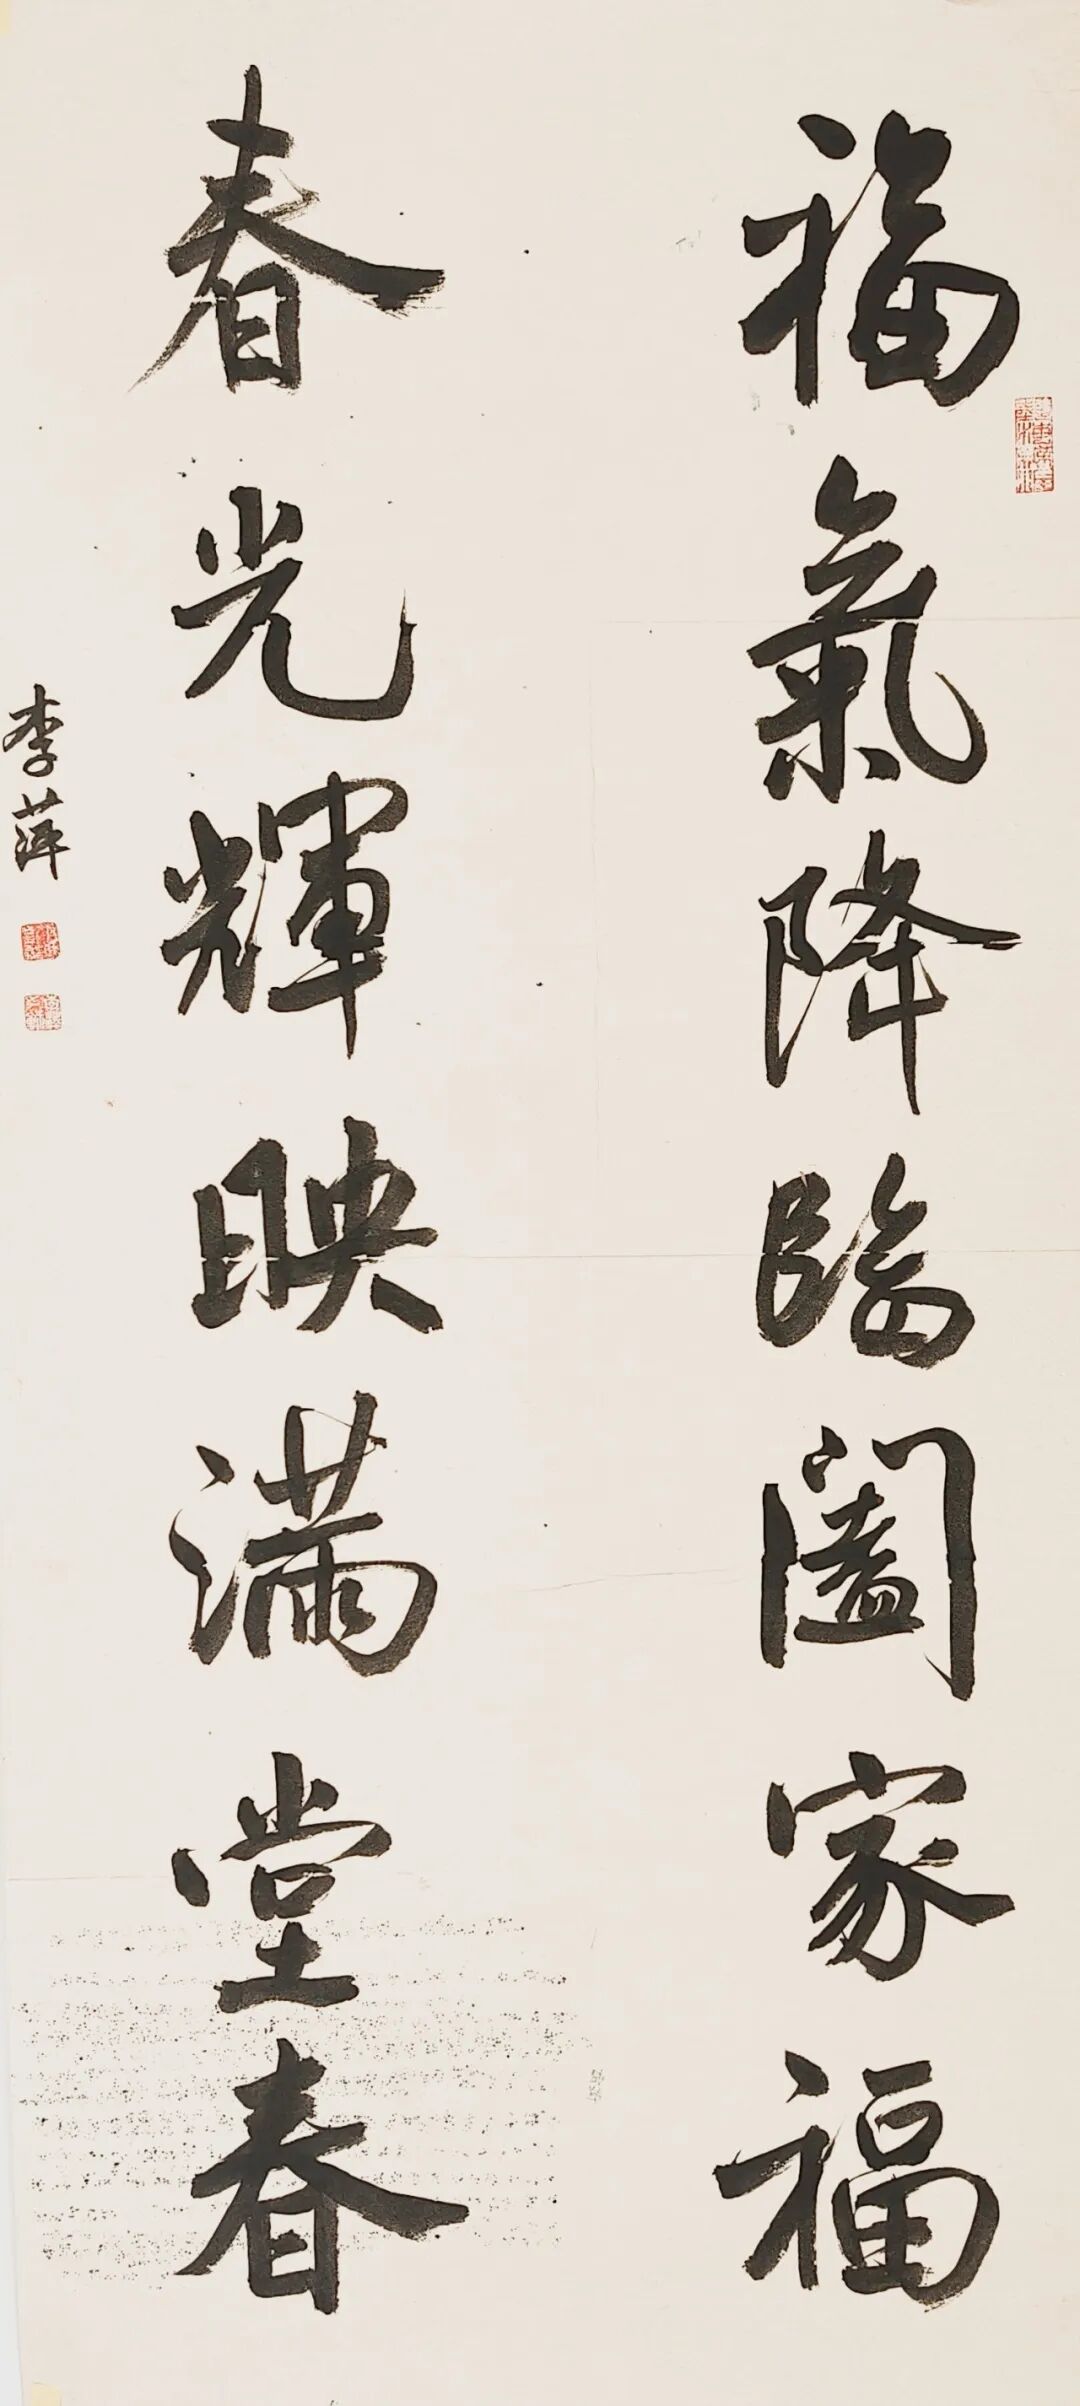 福氣降臨闔家福
春光輝映满堂春
李萍